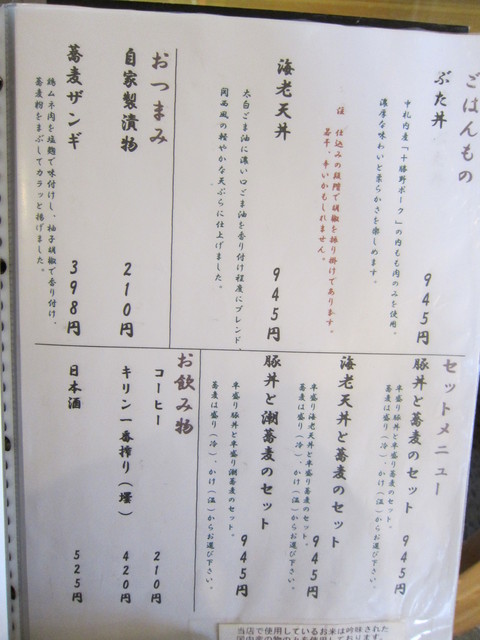 ごはんもの
ぶた丼 945円
中札内産「十勝野ポーク」の内もも肉のみを使用。
濃厚な味わいと柔らかさを楽しめます。
注 仕込みの段階で胡椒を振り掛けてあります。
若干、辛いかもしれません。
海老天丼 945円
太白ごま油に濃い口ごま油を香り付け程度にブレンド。
関西風の軽やかな天ぷらに仕上げました。
おつまみ
自家製漬物 210円
蕎麦ザンギ 398円
鶏ムネ肉を塩麹で味付けし、柚子胡椒で香り付け。
蕎麦粉をまぶしてカラッと揚げました。
セットメニュー
豚丼と蕎麦のセット 945円
半盛り豚丼と半盛り蕎麦のセット。
蕎麦は盛り(冷)、かけ(温)からお選び下さい。
海老天丼と蕎麦のセット 945円
半盛り海老天丼と半盛り蕎麦のセット。
蕎麦は盛り(冷)、かけ(温)からお選び下さい。
豚丼と潮蕎麦のセット 945円
半盛り豚丼と半盛り潮蕎麦のセット。
蕎麦は盛り(冷)、かけ(温)からお選び下さい。
お飲み物
コーヒー 210円
キリン一番搾り(壜) 420円
日本酒 525円
当店で使用しているお米は吟味された